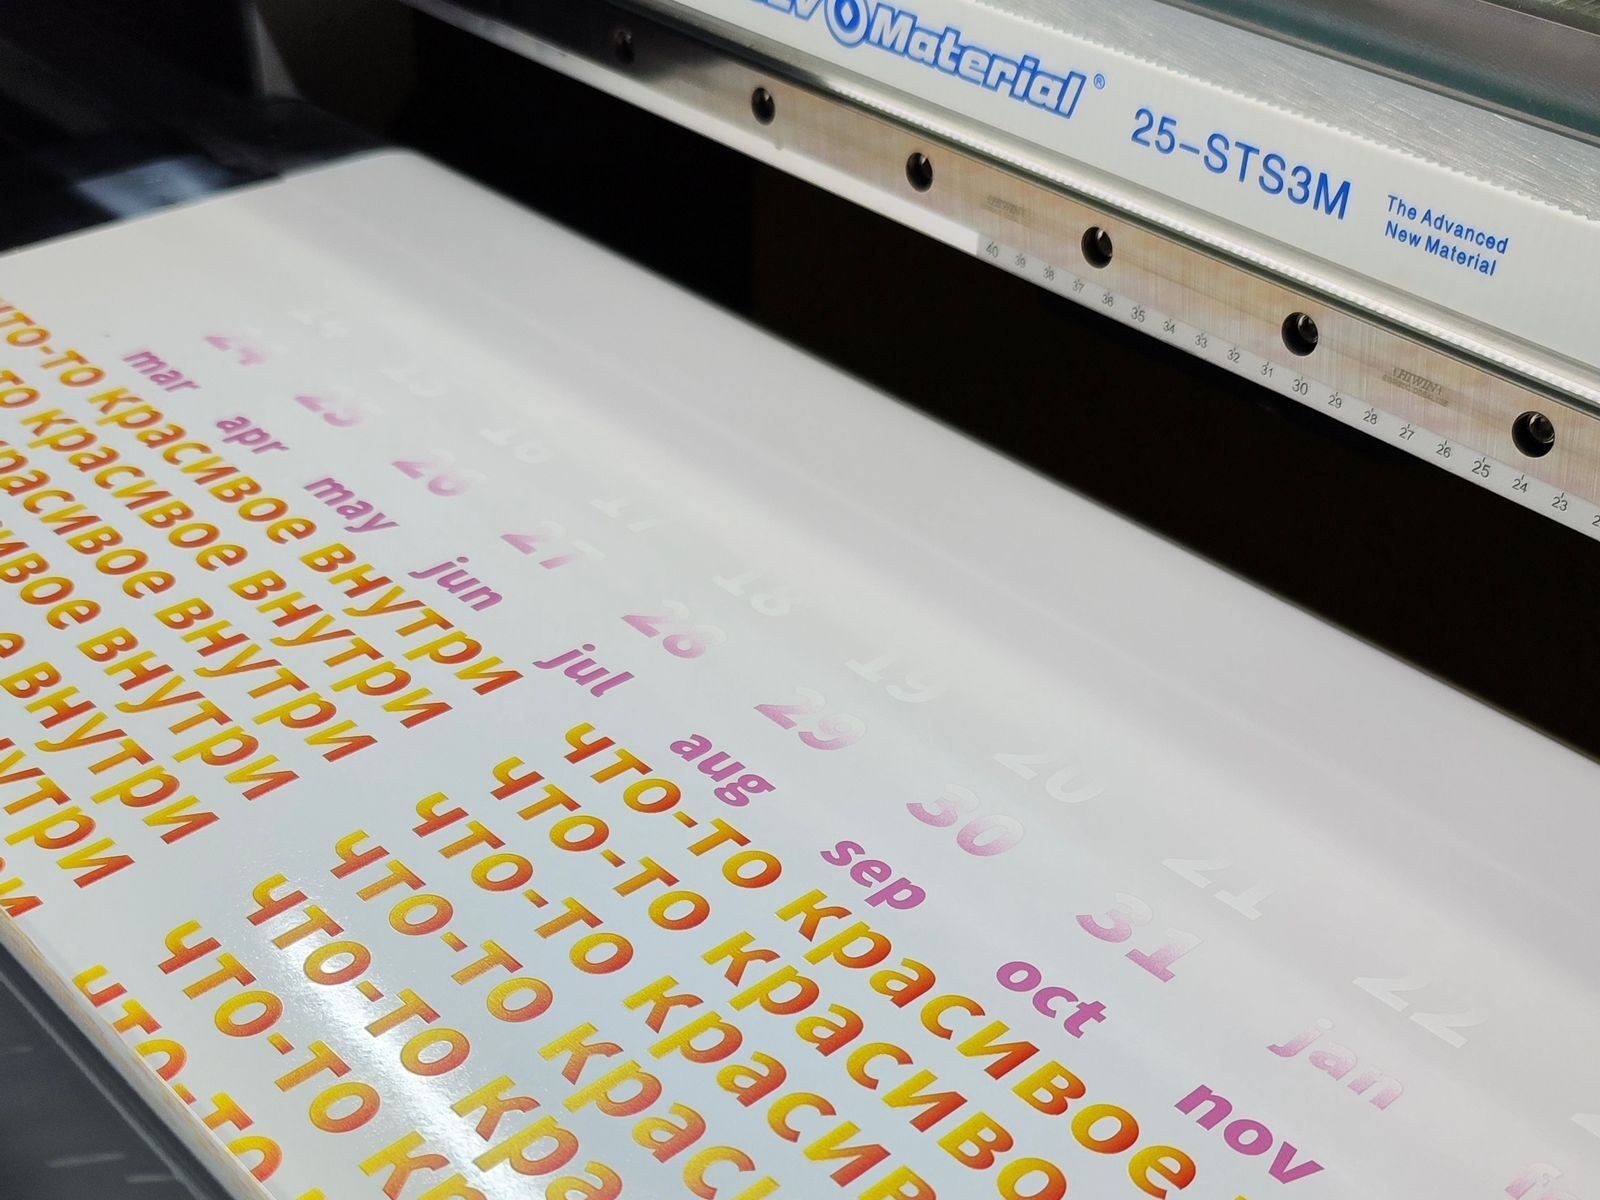 Material®
25-STS3M
The Advanced
New Material
HIWIN
40 39 38 37 36 35 34 33 32 31 30 29 28 27 26 25 24 23
HIWIN
14 15 16 17 18 19 20 21 22
24 25 26 27 28 29 30 31 jan
mar apr may jun jul aug sep oct nov
что-то красивое внутри
то красивое внутри
красивое внутри
сивое внутри
е внутри
внутри
утри
ри
что-то красивое
что-то красиво
что-то красив
что-то краси
что-то кра
что-то к
что-то